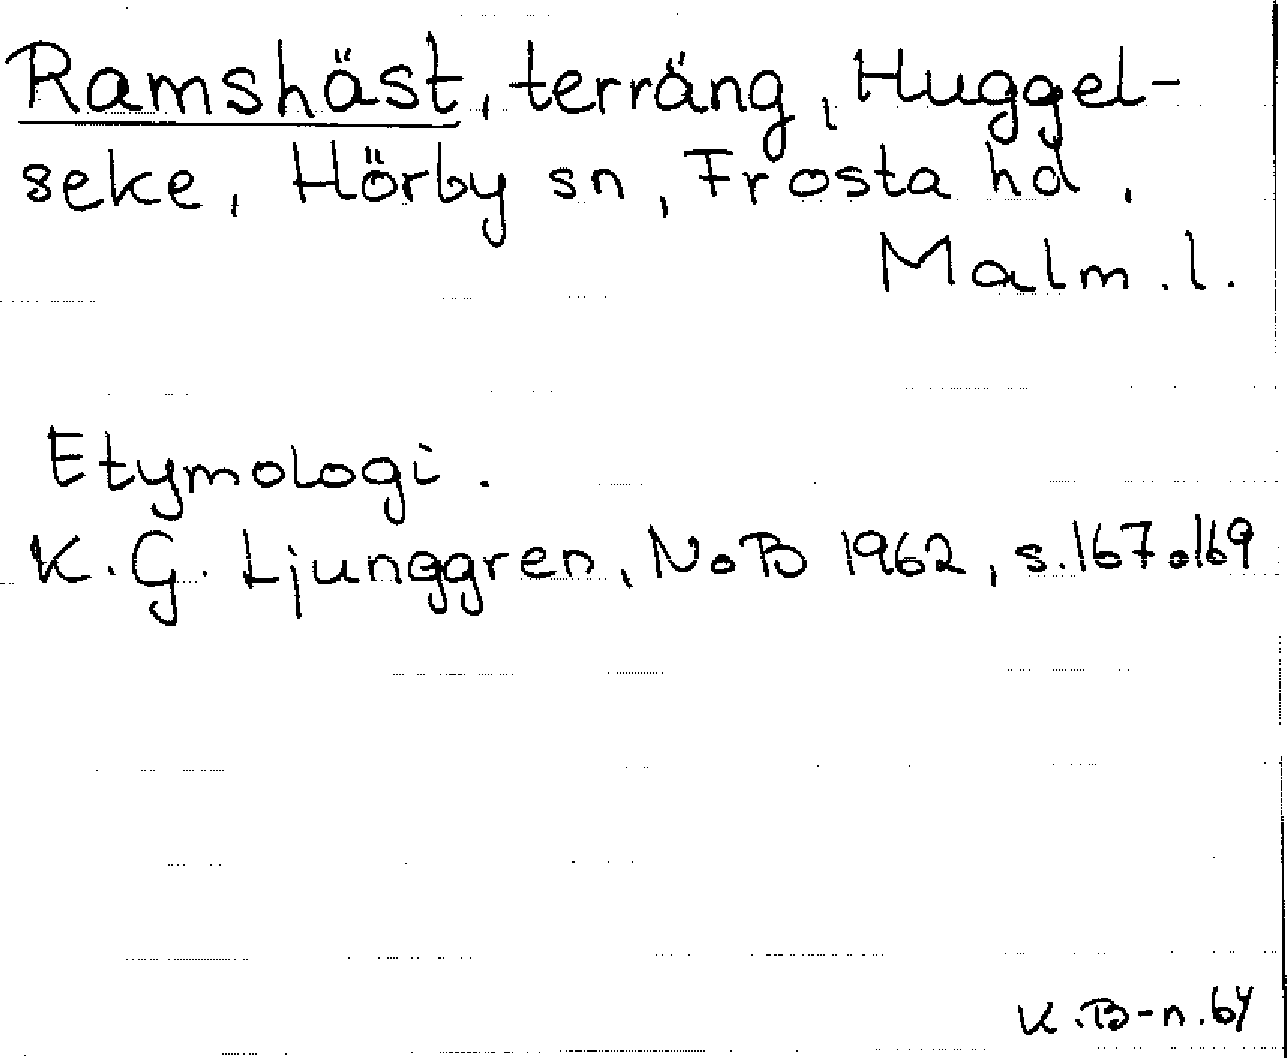 Ramshäst, terräng, Huggel-
seke, Hörby sn, Frosta hd,
Malm. l.
Etymologi.
K. G. Ljunggren, NoB 1962, s. 167 o 169
K. B-n. 64